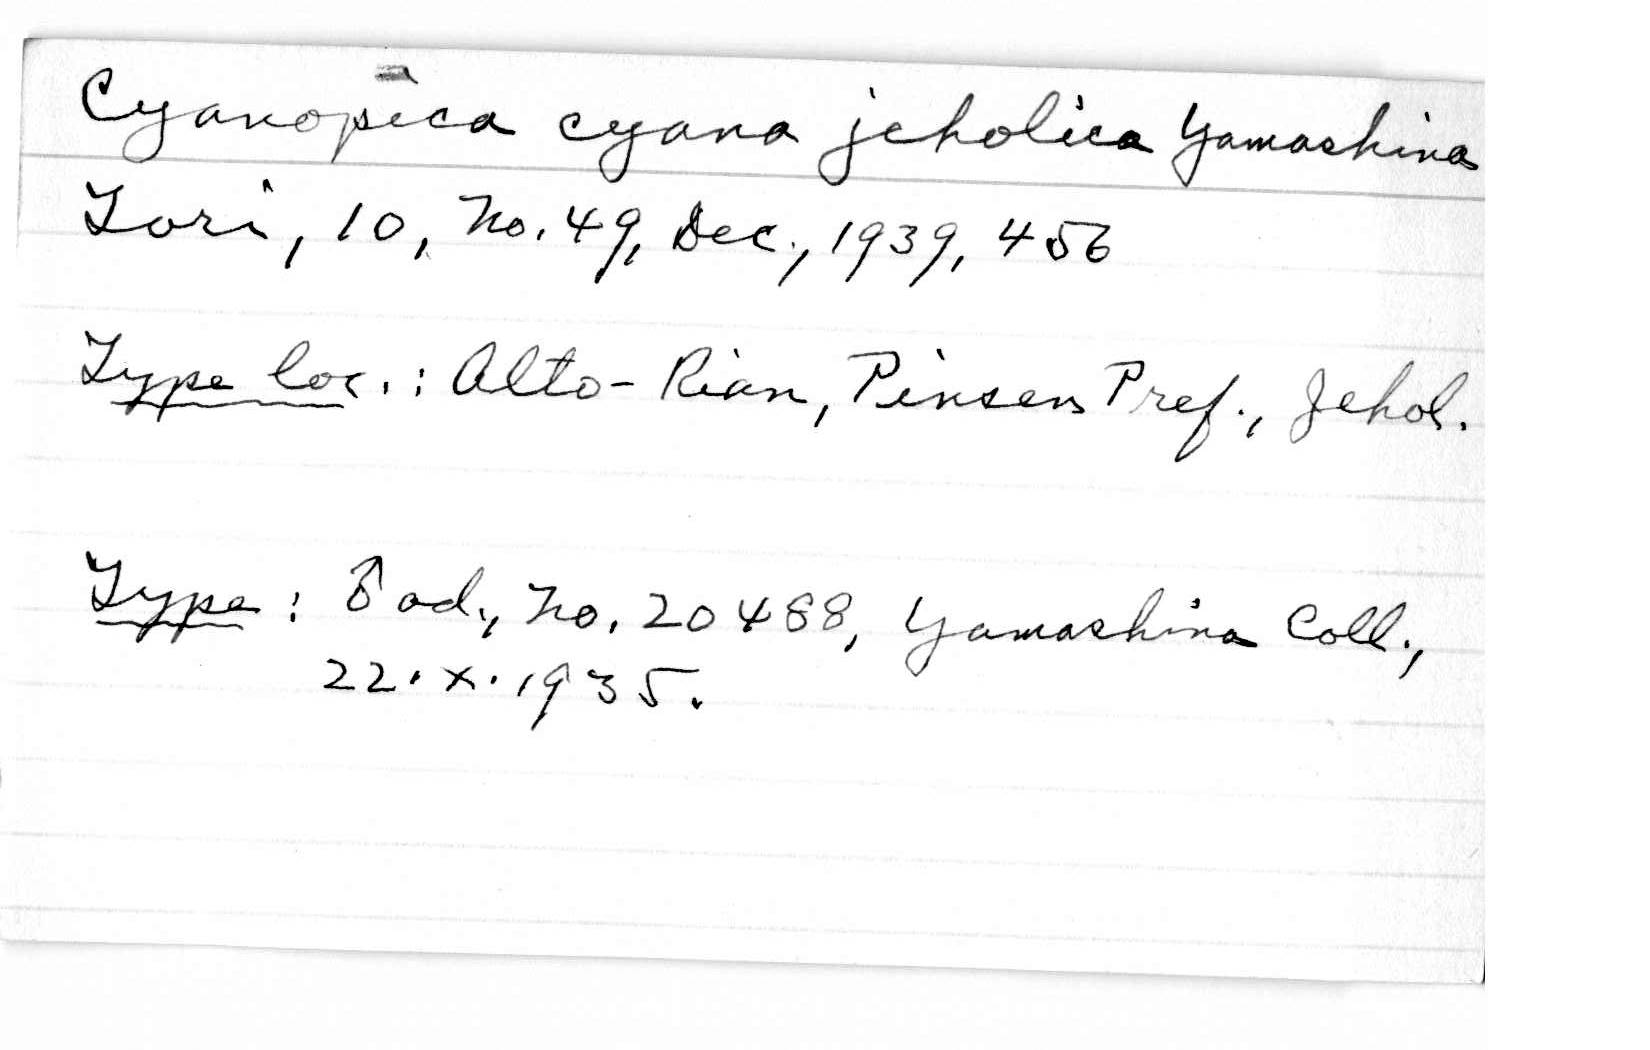 Cyanopica cyana jeholica Yamashina
Tori, 10, No. 49, Dec., 1939, 456
Type loc.: Alto-Rian, Pinsen Pref., Jehol.
Type: ♂ ad., No. 20488, Yamashina Coll.,
22.X.1935.